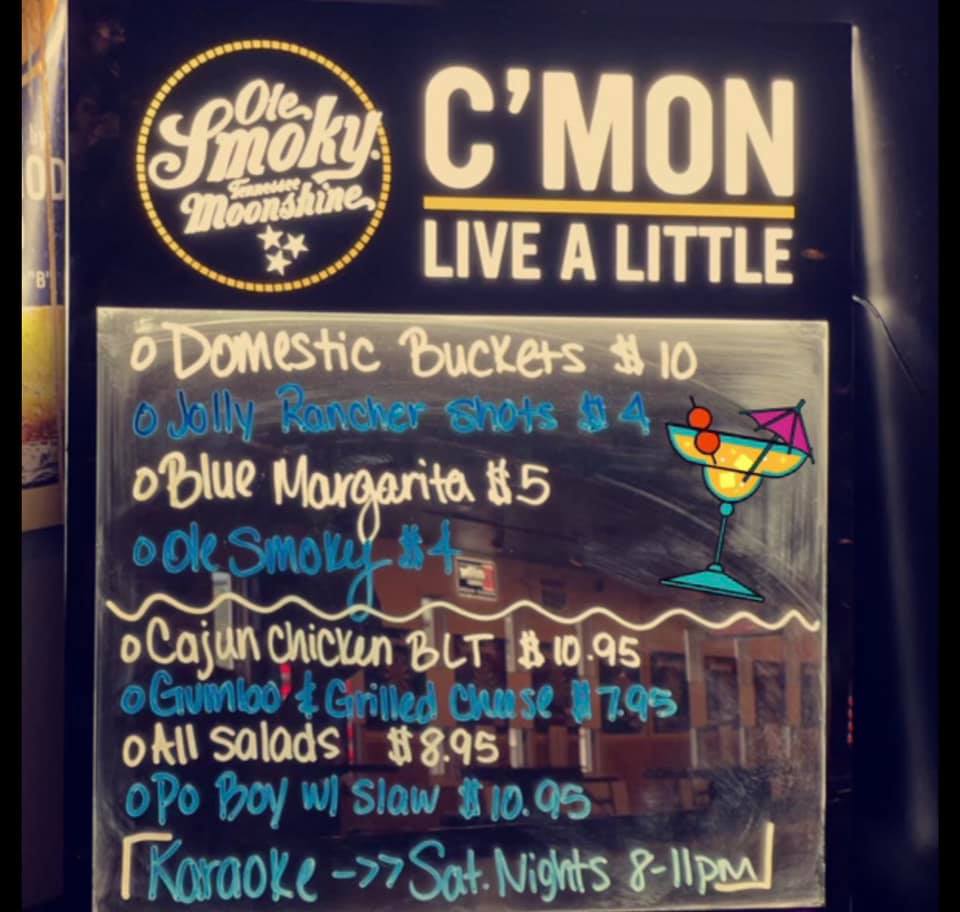 Ole
Smoky
Tennessee
Moonshine
C'MON
LIVE A LITTLE
OD
"B"
o Domestic Buckets $10
o Jolly Rancher shots $4
o Blue Margarita $5
o Ole Smoky $4
o Cajun Chicken BLT $10.95
o Gumbo & Grilled Cheese $7.95
o All salads $8.95
o Po Boy w/ slaw $10.95
Karaoke ->> Sat. Nights 8-11pm